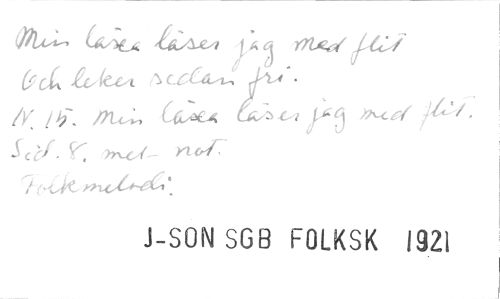 Min läxa läser jag med flit
Och leker sedan fri.
N. 15. Min läxa läser jag med flit.
Sid. 8. mel- not.
Folkmelodi.
J-SON SGB FOLKSK 1921